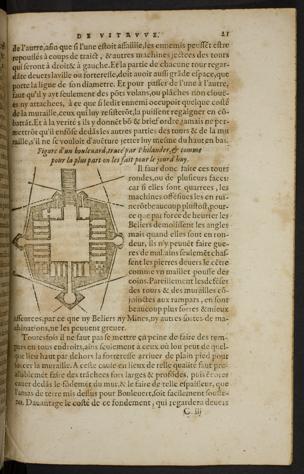 DE VITRVVE. 21
de l'autre, afin que si l'une estoit assaillie, les ennemis peussēt estre
repoulsés à coups de traict, & autres machines jectees des tours
qui seront à droit & à gauche. Et la partie de chacune tour regar-
dāte deuers la ville ou forteresse, doit auoir aussi grāde espace, que
porte la ligne de son diametre. Et pour passer de l'une à l'autre,
faut qu'il y ayt seulement des pōts volans, ou plāches non cloué-
es ny attachees, à ce que si ledit ennemi occupoit quelque costé
de la muraille, ceux qui luy resisterōt, la puissent
mettrōt qu'il enfōse dedās les autres parties des tours & de la mu
raille, s'il ne se vouloit d'auēture jetter luy mesme du haut en bas.
Figure d'un bouleuard tracé par Philander, & comme
pour la plus part on les fait pour le jourd'huy.
Il faut donc faire ces tours
rondes, ou de plusieurs faces:
car si elles sont quarrees, les
machines offensiues les en rui-
nerōt beaucoup plustost, pour-
ce que par force de heurter les
Beliers demolissent les angles
mais quand elles sont en ron-
deur, ils n'y peuuēt faire gue-
res de mal, ains seulemēt chas-
sent les pierres deuers le cētre
comme vn maillet pousse des
coins. Pareillement les defēses
des tours & des murailles cō-
joinctes aux rampars, en sont
beaucoup plus fortes & mieux
asseurees, par ce que ny Beliers ny Mines, ny autres sortes de ma-
chinations, ne les peuuent greuer.
Toutesfois il ne faut pas se mettre en peine de faire des ram-
pars en tous endroits, ains seulement a ceux ou lon peut de quel-
que lieu haut par dehors la forteresse arriuer de plain pied pour
forcer la muraille. A ceste cause en lieux de telle qualité faut pre-
allablemēt faire des trāchees fors larges & profōdes, puis
cauer dedās le fōdemēt du mur, & le faire de telle espaisseur, que
l'amas de terre mis dessus pour Bouleuert, soit facilement souste-
nu. Dauantage le costé de ce fondement, qui regardera deuers
C iij